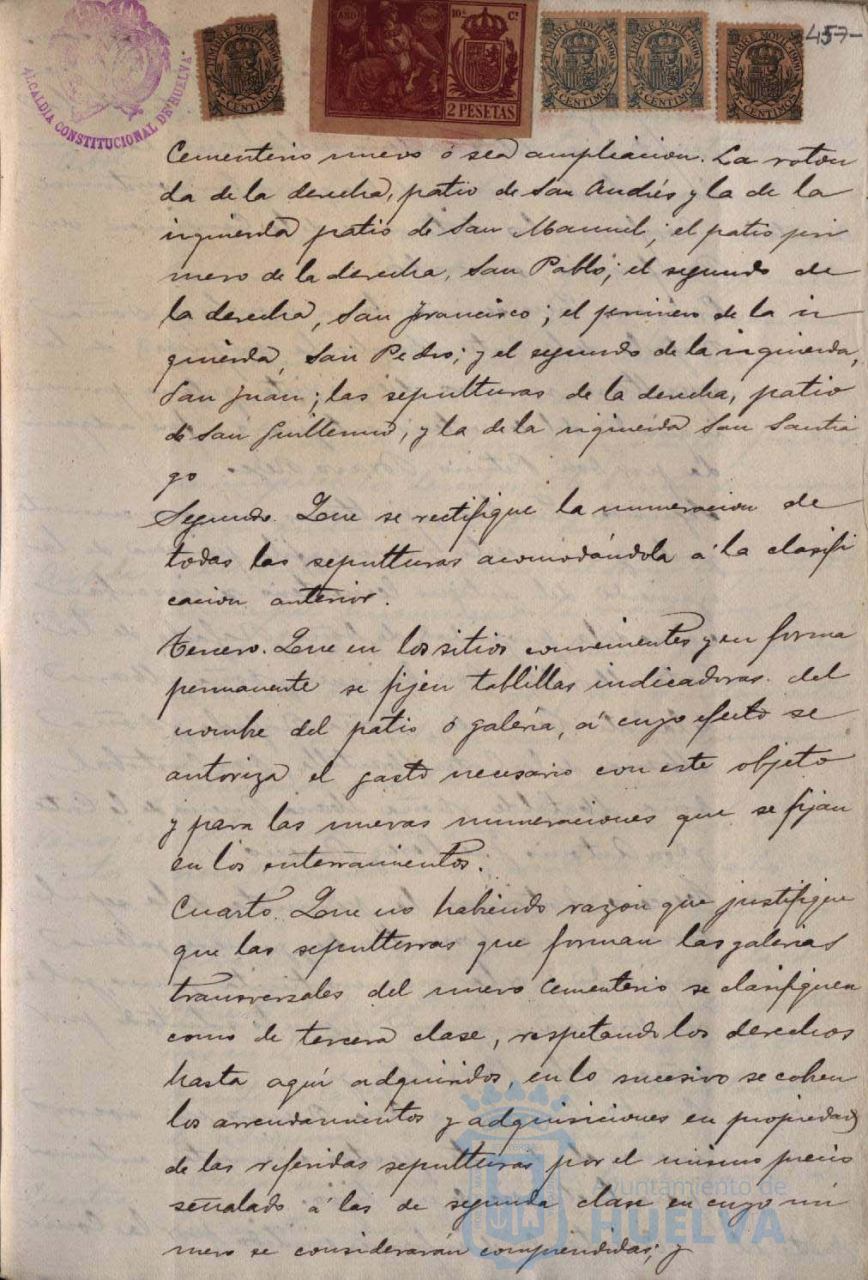 ALCALDIA CONSTITUCIONAL DE HUELVA
TIMBRE MOVIL 1900
5 CENTIMOS
AÑO 1900
10ª Cª
2 PESETAS
TIMBRE MOVIL 1900
5 CENTIMOS
TIMBRE MOVIL 1900
5 CENTIMOS
TIMBRE MOVIL 1900
5 CENTIMOS
457-
Cementerio nuevo ó sea ampliacion. La roton
da de la derecha, patio de San Andrés y la de la
izquierda patio de San Manuel; el patio pri
mero de la derecha, San Pablo; el segundo de
la derecha, San Francisco; el primero de la iz
quierda, San Pedro; y el segundo de la izquierda,
San Juan; las sepulturas de la derecha, patio
de San Guillermo, y la de la izquierda San Santia
go
Segundo. Que se rectifique la numeracion de
todas las sepulturas acomodándola á la clasifi
cacion anterior.
Tercero. Que en los sitios convenientes y en forma
permanente se fijen tablillas indicadoras del
nombre del patio ó galeria, á cuyo efecto se
autoriza el gasto necesario con este objeto
y para las nuevas numeraciones que se fijan
en los enterramientos.
Cuarto. Que no habiendo razon que justifique
que las sepulturas que forman las galerias
transversales del nuevo Cementerio se clasifiquen
como de tercera clase, respetando los derechos
hasta aquí adquiridos, en lo sucesivo se cobren
los arrendamientos y adquisiciones en propiedad
de las referidas sepulturas por el mismo precio
señalado á las de segunda clase en cuyo nú
mero se considerarán comprendidas; y
Ayuntamiento de
HUELVA